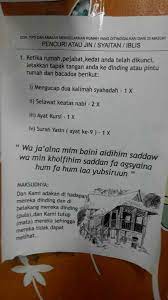 DOA, TIPS DAN AMALAN MENGELAKKAN RUMAH YANG DITINGGALKAN DARI DIMASUKI
PENCURI ATAU JIN / SYAITAN / IBLIS
1. Ketika rumah,pejabat,kedai anda telah dikunci,
letakkan tapak tangan anda ke dinding atau pintu
rumah dan bacadoa berikut:
i) Mengucap dua kalimah syahadah - 1 X
ii) Selawat keatas nabi - 2 X
iii) Ayat Kursi - 1 X
iv) Surah Yasin ( ayat ke-9 ) - 1 X
" Wa ja'alna mim baini aidihim saddaw
wa min kholfihim saddan fa agsyaina
hum fa hum laa yubsiruun "
MAKSUDNYA:
Dan Kami adakan di hadapan
mereka dinding dan di
belakang mereka dinding
(pula),dan Kami tutup
(mata) mereka sehingga
mereka tidak dapat
melihat.